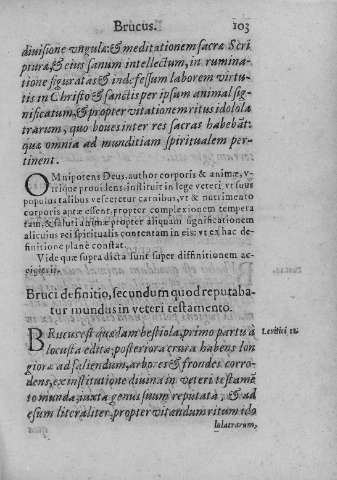 Brucus. 103
diuisione vngulæ:& meditationem sacræ Scri
pturæ,& eius sanum intellectum, in rumina-
tione figuratas & indefessum laborem virtu-
tis in Christo & sanctis per ipsum animal sig-
nificatum, & propter vitationem ritus idolola
trarum, quo boues inter res sacras habebãt:
quæ omnia ad munditiam spiritualem per-
tinent.
OMnipotens Deus, author corporis & animæ, v-
trisque prouidens, instituit in lege veteri, vt suus
populus talibus vesceretur carnibus, vt & nutrimento
corporis aptæ essent, propter complexionem tempera
tam, & saluti animæ propter aliquam significationem
alicuius rei spiritualis contentam in eis: vt ex hac de-
finitione planè constat.
Vide quæ supra dicta sunt super diffinitionem ac-
cipitris.
Bruci definitio, secundum quod reputaba-
tur mundus in veteri testamento.
BRucus est quædam bestiola, primo partu à
Leuitici 11.
locusta editæ, posteriora crura habens lon
giora ad saliendum, arbores & frondes corro-
dens, ex institutione diuina in veteri testamẽ
to munda, iuxta genus suum reputata, & ad
esum literaliter, propter vitandum ritum ido
lolatrarum,